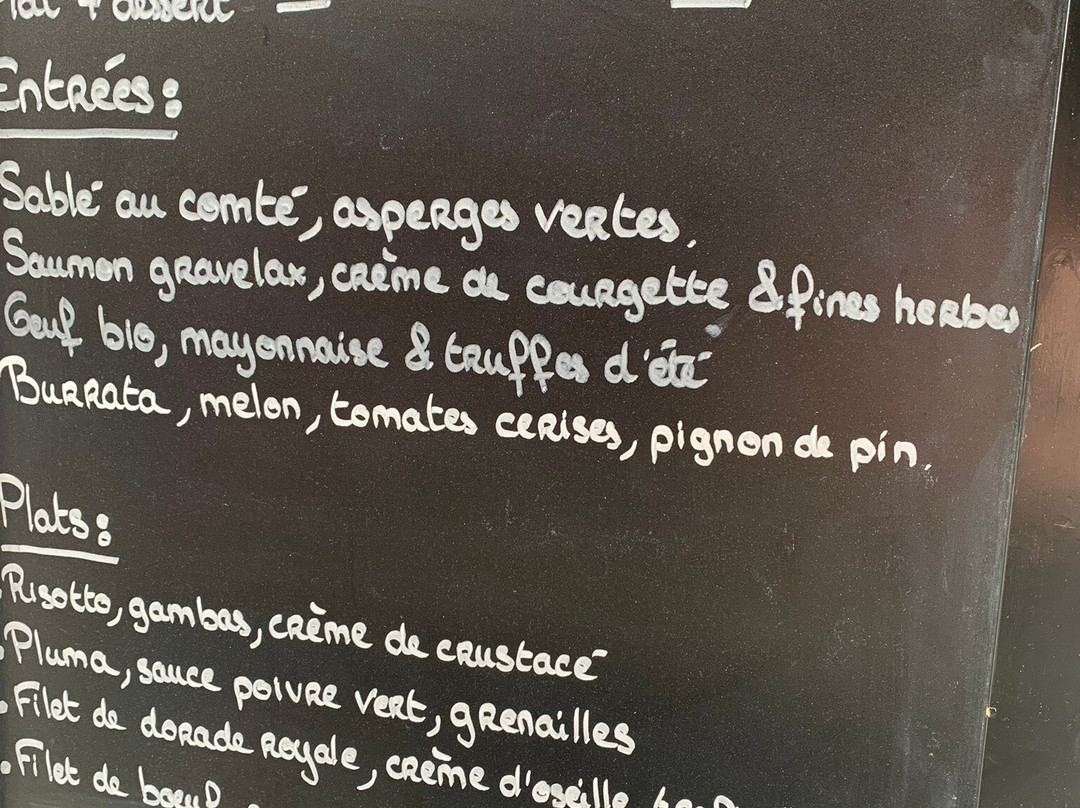 Plat + dessert
Entrées:
Sablé au comté, asperges vertes.
Saumon gravelax, crème de courgette & fines herbes
Oeuf bio, mayonnaise & truffes d'été
Burrata, melon, tomates cerises, pignon de pin.
Plats:
.Risotto, gambas, crème de crustacé
.Pluma, sauce poivre vert, grenailles
.Filet de dorade royale, crème d'oseille
.Filet de boeuf